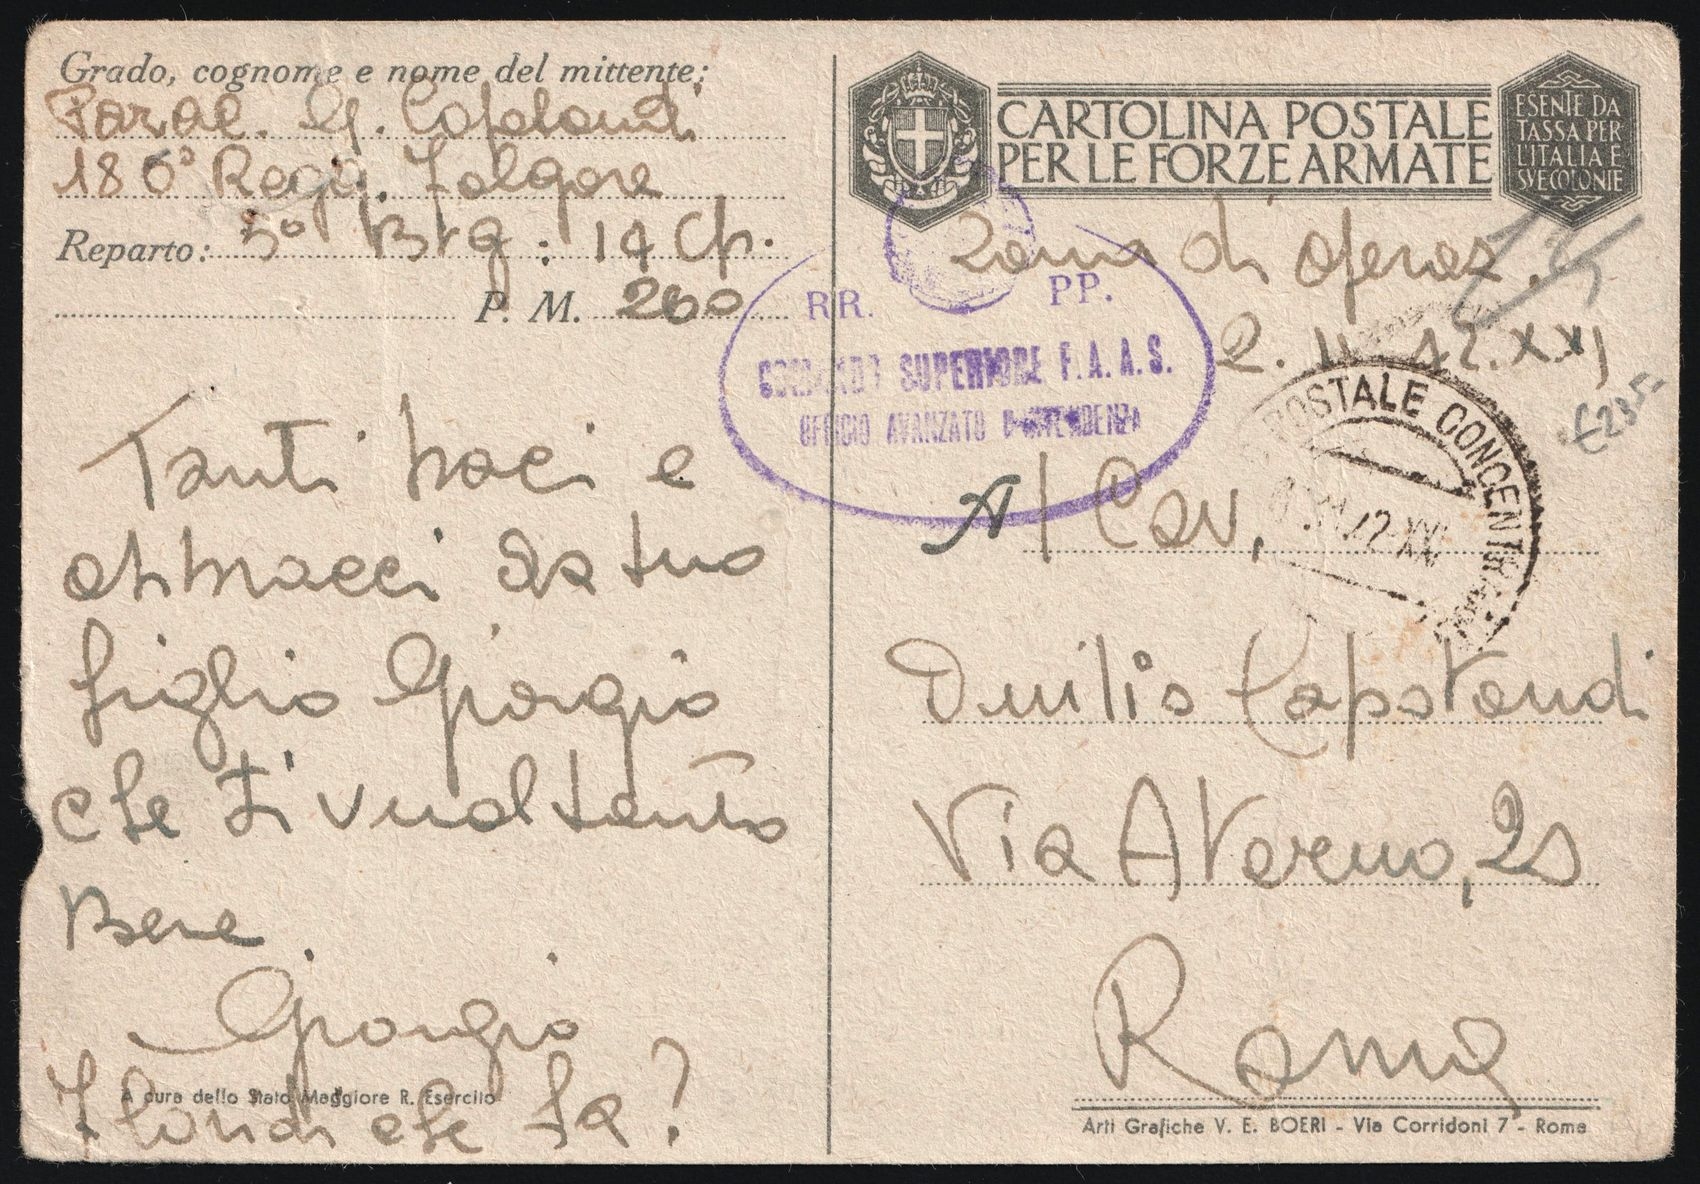 Grado, cognome e nome del mittente:
Parac. G. Capolondi
186° Regg. Folgore
Reparto: 5° Btg: 14 Cp.
P. M. 260
Tanti baci e
abbracci da tuo
figlio Giorgio
che ti vuol tanto
Bene.
Giorgio
che fa?
A cura dello Stato Maggiore R. Esercito
CARTOLINA POSTALE
PER LE FORZE ARMATE
ESENTE DA
TASSA PER
L'ITALIA E
SVE COLONIE
Zona di operaz.
2. 11. 42. XXI
RR. PP.
COMANDO SUPERIORE F.A.A.S.
UFFICIO AVANZATO D'INTENDENZA
POSTALE CONCENTRAMENTO
Al Cav.
Duilio Capolondi
Via Averno, 2
Roma
Arti Grafiche V. E. BOERI - Via Corridoni 7 - Roma